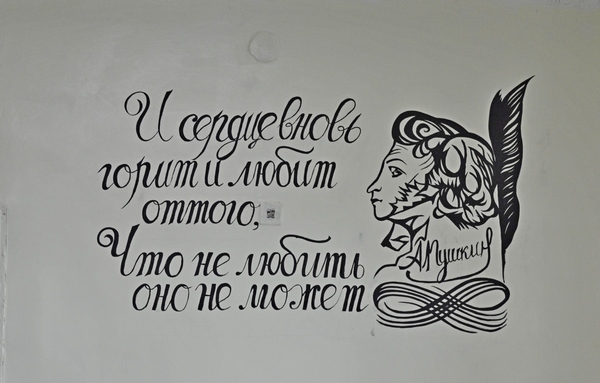 И сердце вновь
горит и любит
оттого,
Что не любить
оно не может
А.Пушкин